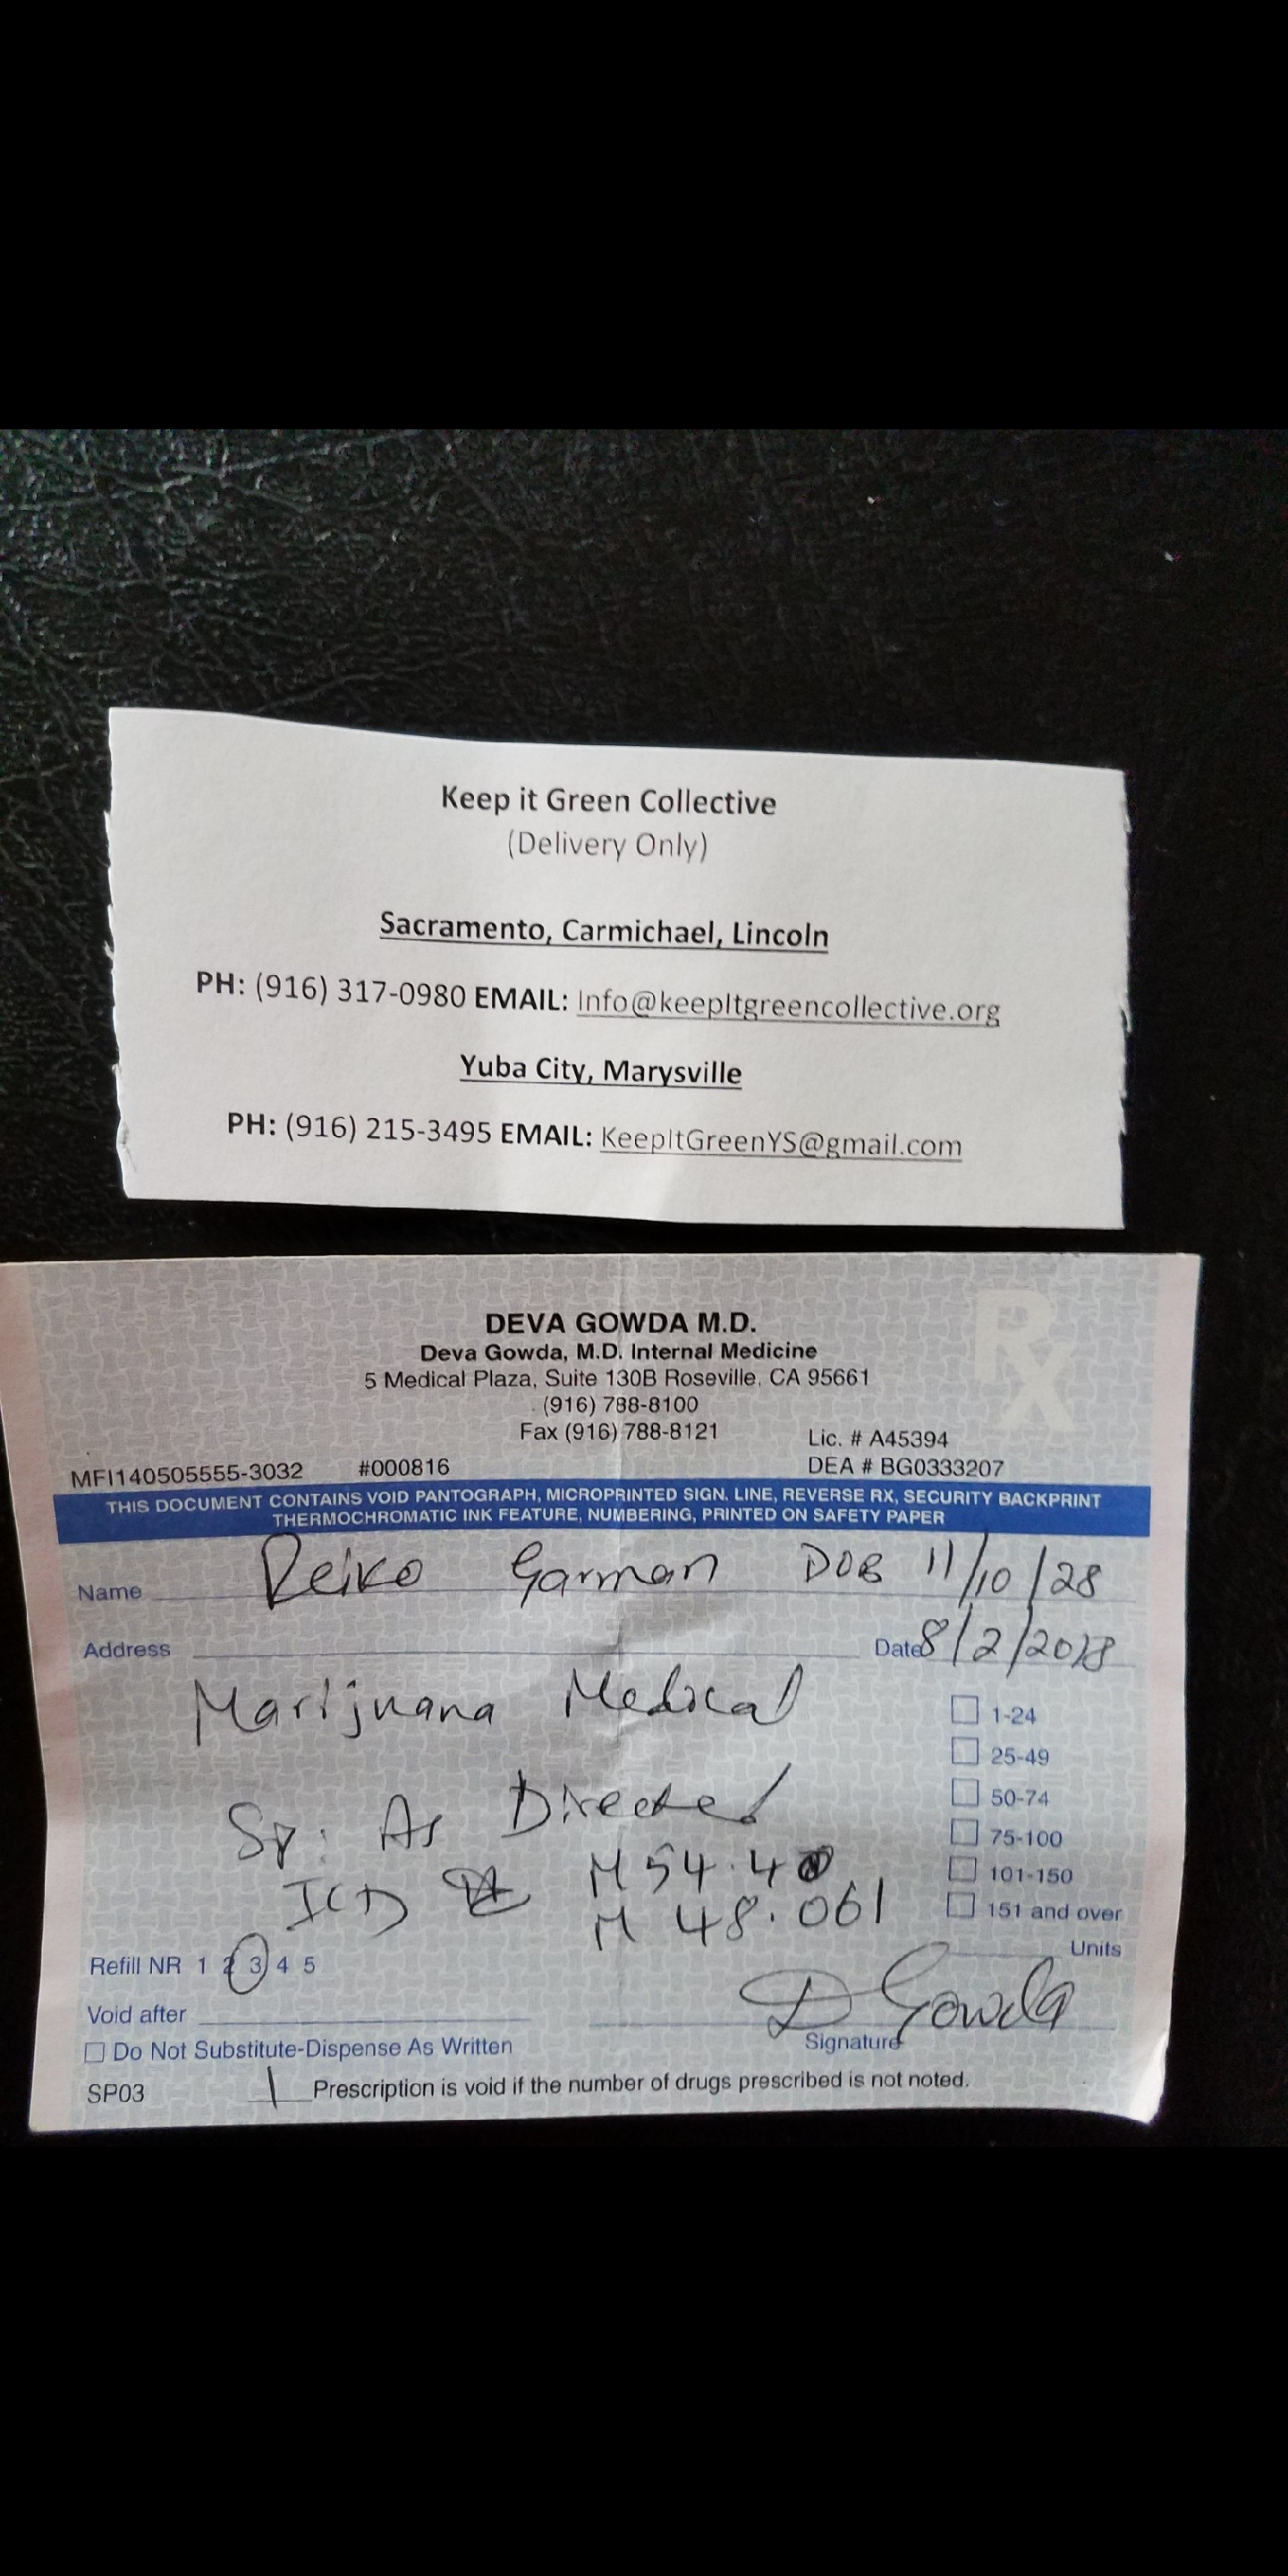 Keep it Green Collective
(Delivery Only)
Sacramento, Carmichael, Lincoln
PH: (916) 317-0980 EMAIL: Info@keepItgreencollective.org
Yuba City, Marysville
PH: (916) 215-3495 EMAIL: KeepItGreenYS@gmail.com
RX
DEVA GOWDA M.D.
Deva Gowda, M.D. Internal Medicine
5 Medical Plaza, Suite 130B Roseville, CA 95661
(916) 788-8100
Fax (916) 788-8121
Lic. # A45394
MFI140505555-3032 #000816 DEA # BG0333207
THIS DOCUMENT CONTAINS VOID PANTOGRAPH, MICROPRINTED SIGN. LINE, REVERSE RX, SECURITY BACKPRINT
THERMOCHROMATIC INK FEATURE, NUMBERING, PRINTED ON SAFETY PAPER
Name Reiko Garman DOB 11/10/28
Address Date 8/2/2018
Marijuana Medical
1-24
25-49
50-74
Sp: As Directed
75-100
ICD M54.40
101-150
M 48.061
151 and over
Units
Refill NR 1 2 3 4 5
D Gowda
Void after
Signature
Do Not Substitute-Dispense As Written
SP03 1 Prescription is void if the number of drugs prescribed is not noted.